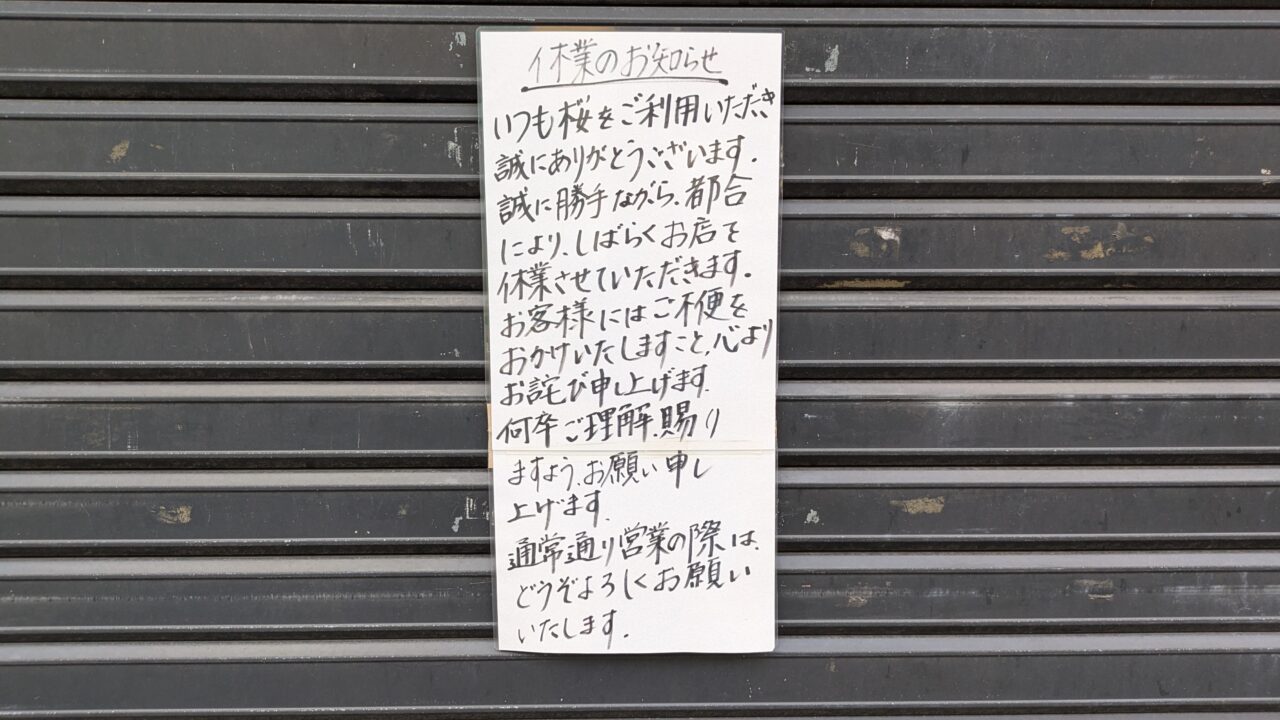 休業のお知らせ
いつも桜をご利用いただき
誠にありがとうございます.
誠に勝手ながら、都合
により、しばらくお店を
休業させていただきます.
お客様にはご不便を
おかけいたしますこと、心より
お詫び申し上げます.
何卒ご理解、賜り
ますよう、お願い申し
上げます.
通常通り営業の際は、
どうぞよろしくお願い
いたします.